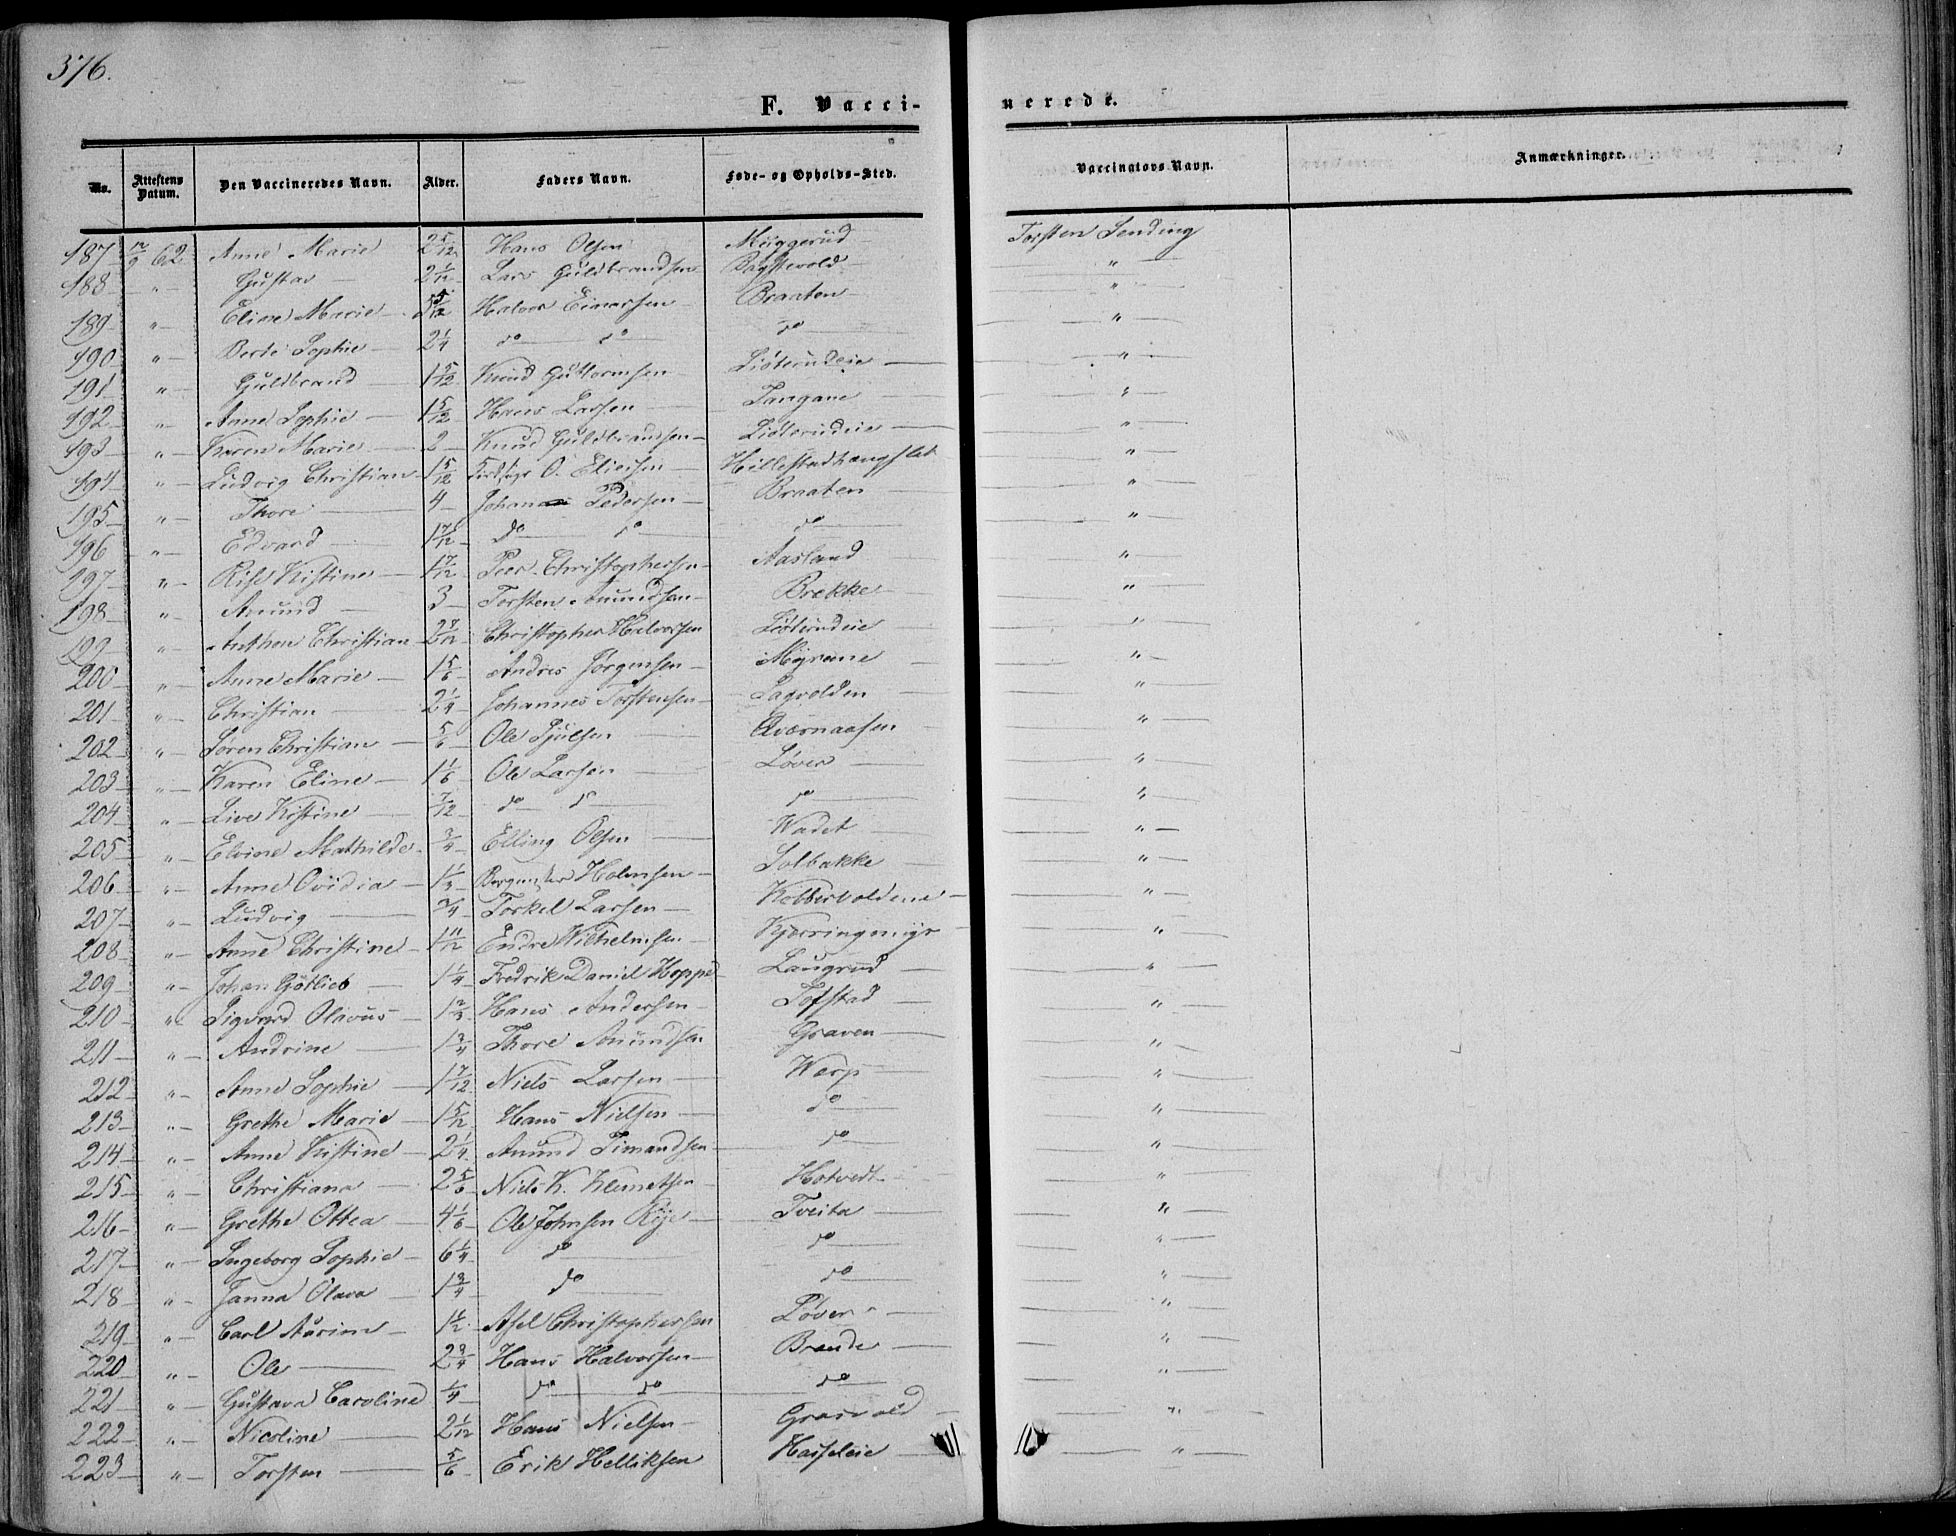 376.
F. Vacci-
nerede.
No. Attestens Datum. Den Vaccineredes Navn. Alder. Faders Navn. Føde- og Opholds-Sted. Vaccinators Navn. Anmærkninger.
187 2/9 62 Anne Marie 2 5/12 Hans Olsen Müggerüd Torsten Sending
188 " Gustav 2 1/12 Lars Guldbrandsen Bagstevold "
189 " Eline Marie 5/12 Halvor Einarsen Braaten "
190 " Berte Sophie 2 1/4 do do do "
191 " Guldbrand 1 5/12 Knud Guttormsen Liøterudeie "
192 " Anne Sophie 1 5/12 Hans Larsen Tangane "
193 " Karen Marie 2 Knud Guldbrandsen Liøterudeie "
194 " Ludvig Christian 1 5/12 O. Eliesen Hillestadhangslet "
195 " Thore 4 Johan Pedersen Braaten "
196 " Edvard 1 7/12 do do do "
297 " Kistine 1 7/12 Peer Christophersen Aasland "
198 " Amund 3 Torsten Amundsen Brekke "
199 " Anthon Christian 2 7/12 Christopher Halvorsen Liøterudeie "
200 " Anne Marie 1 5/6 Andres Jørgensen Myrene "
201 " Christian 2 1/4 Johannes Torstensen Lagvolden "
202 " Soren Christian 5/6 Ole Qværnaasen "
203 " Karen Eline 1 1/6 Ole Larsen Løver "
204 " Live Kistine 7/12 do do do "
205 " Elvine Mathilde 3/4 Elling Olsen Wadet "
206 " Anne Ovidia 1 1/3 Halmsen Solbakke "
207 " Ludvig 3/4 Torkel Larsen Kobbervoldene "
208 " Anne Christine 1 11/12 Endre Wilhelmsen Kjærringmyr "
209 " Johan Gotlieb 1 1/4 Fredrik Daniel Hoppe Laugrud "
210 " Sigvard Olavus 1 2/3 Hans Andersen Tofstad "
211 " Andrine 1 3/4 Thore Amundsen Graven "
212 " Anne Sophie 1 7/12 Niels Larsen Werp "
213 " Grethe Marie 1 5/12 Hans Nielsen do "
214 " Anne Kistine 2 1/4 Amund Simandsen do "
215 " Christiana 2 5/6 Niels K. Klemetsen Hotvedt "
216 " Grethe Ottea 4 1/6 Ole Johnsen Rye Tveita "
217 " Ingeborg Sophie 6 1/4 do do "
218 " Janna Olava 1 3/4 do do "
219 " Carl 1 1/2 Axel Christophersen Løver "
220 " Ole 2 3/4 Hans Halvorsen Brende "
221 " Gustava Caroline 1/4 do do do "
222 " Nicoline 2 1/12 Hans Nielsen Grosvold "
223 " Torsten 5/6 Erik Helliksen Hasseleie "